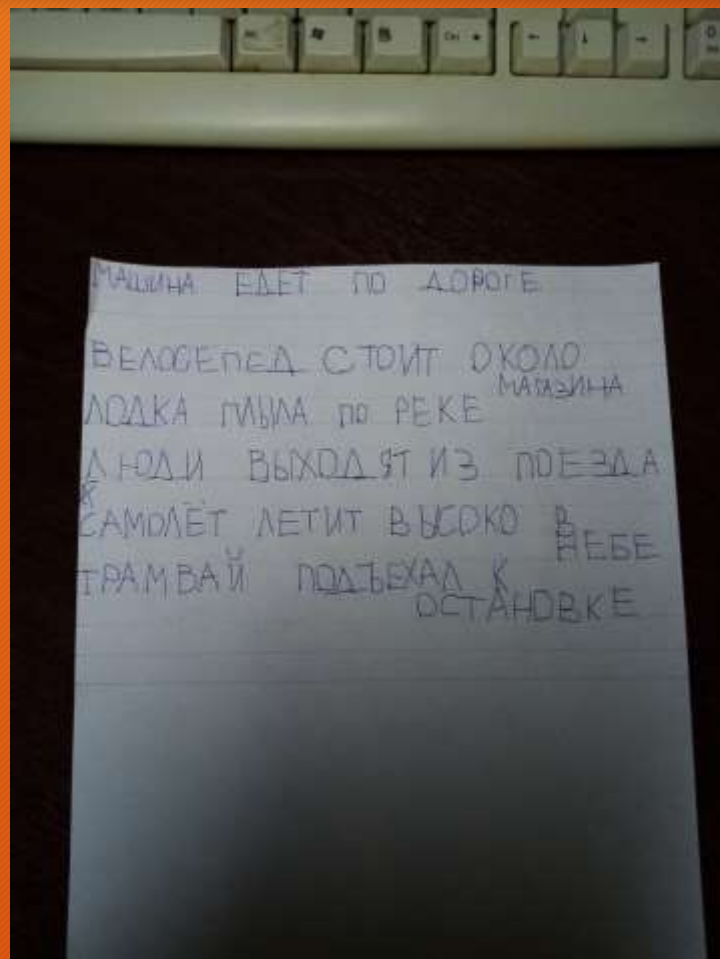 МАШИНА ЕДЕТ ПО ДОРОГЕ
ВЕЛОСЕПЕД СТОИТ ОКОЛО
МАГАЗИНА
ЛОДКА ПЛЫЛА ПО РЕКЕ
ЛЮДИ ВЫХОДЯТ ИЗ ПОЕЗДА
САМОЛЁТ ЛЕТИТ ВЫСОКО В
НЕБЕ
ТРАМВАЙ ПОДЪЕХАЛ К
ОСТАНОВКЕ